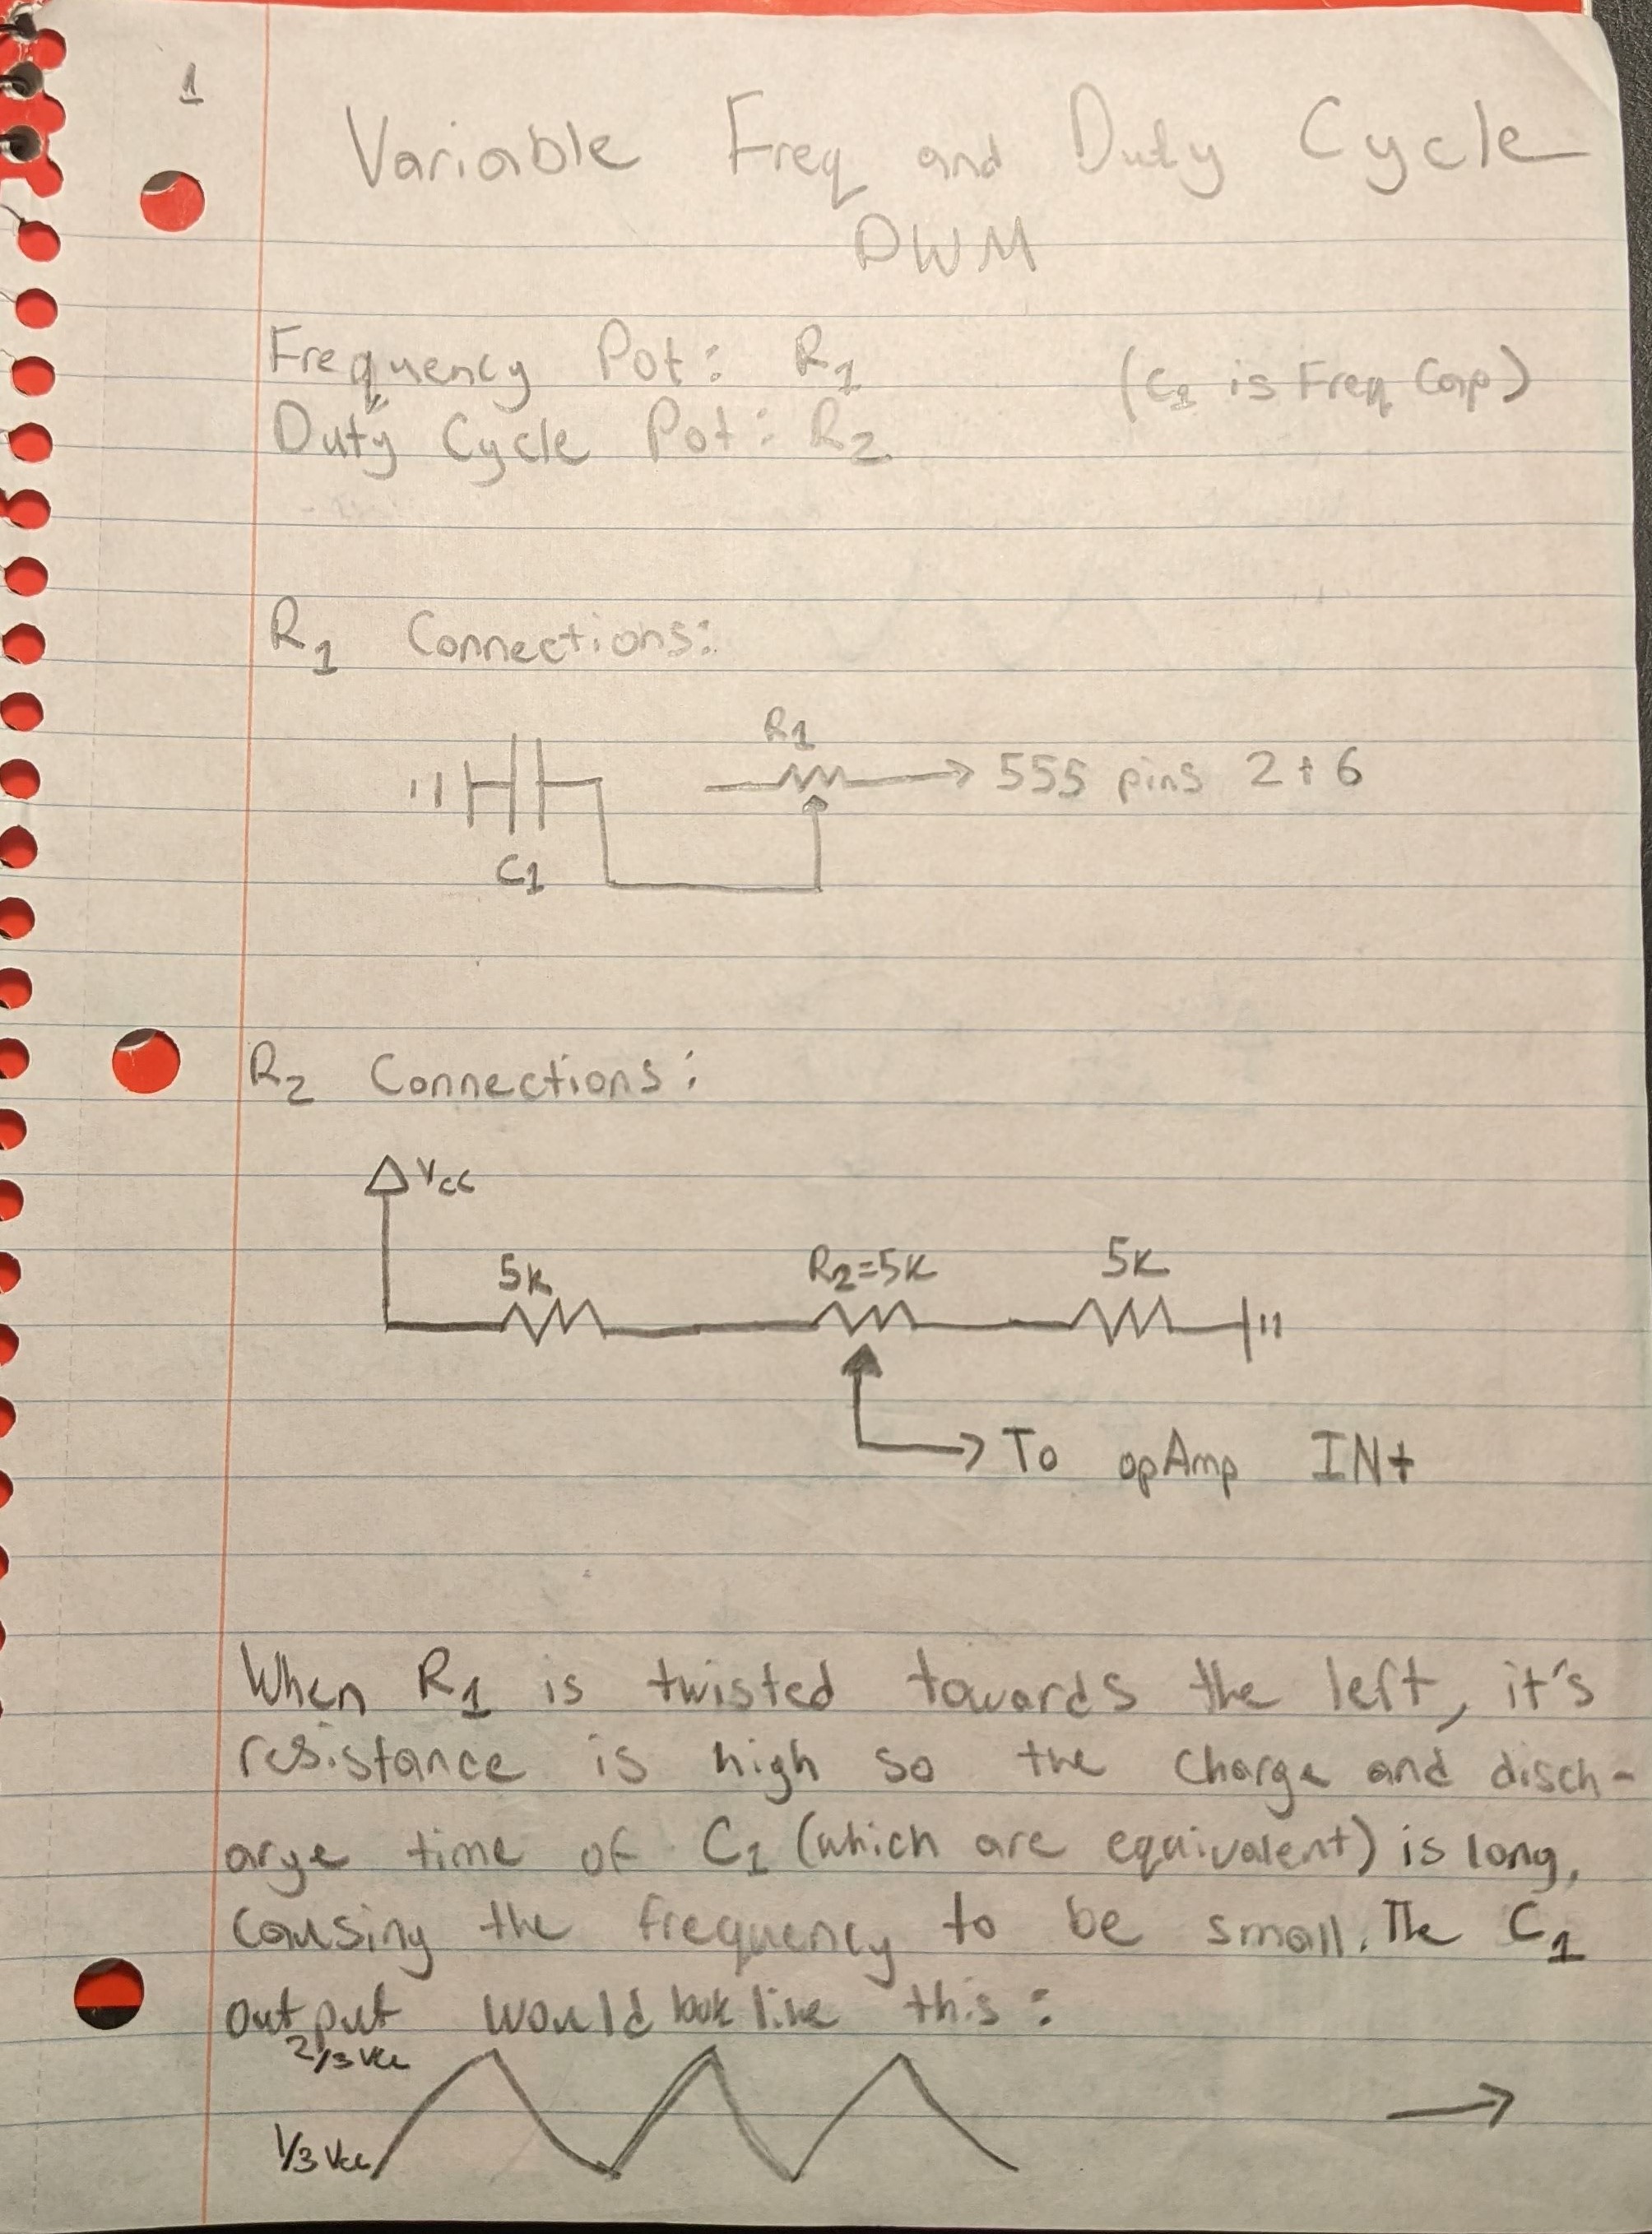 1
Variable Freq and Duty Cycle
PWM
Frequency Pot: R1 (C1 is Freq Cap)
Duty Cycle Pot: R2
R1 Connections:
R1
555 pins 2+6
C1
R2 Connections:
Vcc
5k R2=5k 5k
To opAmp IN+
When R1 is twisted towards the left, it's
resistance is high so the charge and disch-
arge time of C1 (which are equivalent) is long,
causing the frequency to be small. The C1
output would look like this:
2/3 Vcc
1/3 Vcc